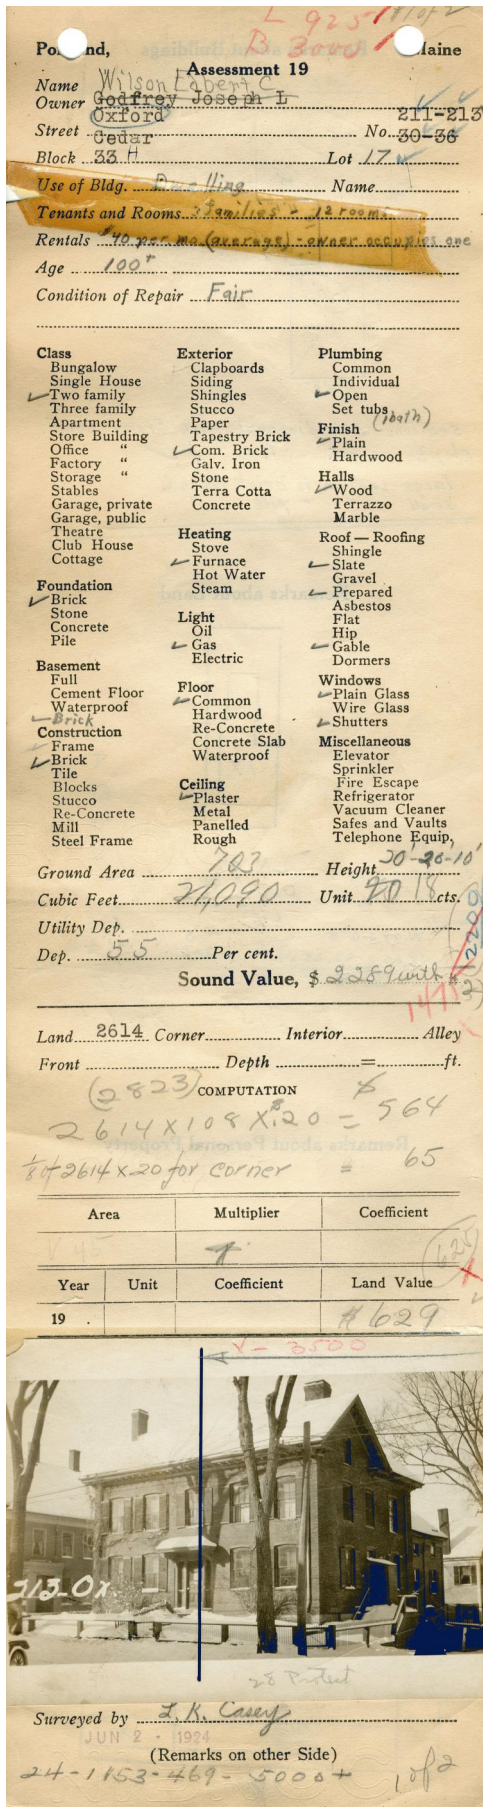 L 925 1 of 2
B 3000
Portland, Maine
Assessment 19
Name Wilson Egbert C.
Owner Godfrey Joseph L
Oxford 211-213
Street Cedar No. 30-36
Block 33 H Lot 17
Use of Bldg. Dwelling Name
Tenants and Rooms 2 families - 12 rooms
Rentals $40 per mo. (average) - owner occupies one
Age 100+
Condition of Repair Fair
Class
Bungalow
Single House
✓ Two family
Three family
Apartment
Store Building
Office "
Factory "
Storage "
Stables
Garage, private
Garage, public
Theatre
Club House
Cottage
Foundation
✓ Brick
Stone
Concrete
Pile
Basement
Full
Cement Floor
Waterproof
✓ Brick
Construction
Frame
✓ Brick
Tile
Blocks
Stucco
Re-Concrete
Mill
Steel Frame
Exterior
Clapboards
Siding
Shingles
Stucco
Paper
Tapestry Brick
✓ Com. Brick
Galv. Iron
Stone
Terra Cotta
Concrete
Heating
Stove
✓ Furnace
Hot Water
Steam
Light
Oil
✓ Gas
Electric
Floor
✓ Common
Hardwood
Re-Concrete
Concrete Slab
Waterproof
Ceiling
✓ Plaster
Metal
Panelled
Rough
Plumbing
Common
Individual
✓ Open
Set tubs
(1 bath)
Finish
✓ Plain
Hardwood
Halls
✓ Wood
Terrazzo
Marble
Roof — Roofing
Shingle
✓ Slate
Gravel
✓ Prepared
Asbestos
Flat
Hip
✓ Gable
Dormers
Windows
✓ Plain Glass
Wire Glass
✓ Shutters
Miscellaneous
Elevator
Sprinkler
Fire Escape
Refrigerator
Vacuum Cleaner
Safes and Vaults
Telephone Equip.
Ground Area 703 Height 20'-20-10'
Cubic Feet 21,090 Unit 20 18 cts.
Utility Dep.
Dep. 55 Per cent.
Sound Value, $ 2289 with
Land 2614 Corner Interior Alley
Front Depth = ft.
(2823) COMPUTATION
2614 X 108 X .20 = $564
1/8 of 2614 x 20 for corner = 65
Area Multiplier Coefficient
625
Year Unit Coefficient Land Value
19 . $629
3500
213-Ox.
28 Protest
Surveyed by L. K. Casey
JUN 2 - 1924
(Remarks on other Side)
24-1153-469-5000+ 1 of 2